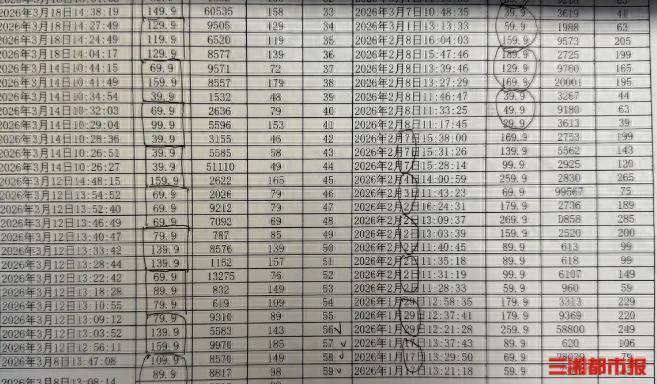 2026年3月18日14:38:19 149.9 60535 158 33 2026年3月7日10:48:35 39.9 3619 41
2026年3月18日14:27:49 129.9 9505 129 34 2026年3月1日13:13:33 59.9 1988 63
2026年3月18日14:24:49 119.9 6520 119 35 2026年2月8日16:04:03 159.9 9573 205
2026年3月18日14:04:17 129.9 8577 139 36 2026年2月8日15:47:46 189.9 2725 199
2026年3月14日10:44:15 69.9 9571 72 37 2026年2月8日13:39:46 129.9 9760 165
2026年3月14日10:41:49 159.9 8557 179 38 2026年2月8日13:27:29 169.9 20001 195
2026年3月14日10:34:54 39.9 1532 48 39 2026年2月8日11:46:47 39.9 3267 44
2026年3月14日10:32:03 69.9 2636 79 40 2026年2月8日11:33:25 49.9 9180 63
2026年3月14日10:29:04 99.9 5596 153 41 2026年2月8日11:17:45 39.9 3613 39
2026年3月14日10:28:36 39.9 3155 46 42 2026年2月7日15:38:00 169.9 2753 199
2026年3月14日10:26:51 39.9 5585 58 43 2026年2月7日15:31:26 139.9 5562 143
2026年3月14日10:26:27 39.9 51110 49 44 2026年2月7日15:28:14 99.9 2925 120
2026年3月12日14:48:15 159.9 2622 165 45 2026年2月4日14:00:59 259.9 2830 265
2026年3月12日13:54:52 69.9 2026 79 46 2026年2月3日11:43:23 69.9 99567 75
2026年3月12日13:52:40 69.9 9212 79 47 2026年2月2日16:24:31 179.9 2736 189
2026年3月12日13:46:49 69.9 7092 69 48 2026年2月2日13:09:37 269.9 0858 285
2026年3月12日13:40:47 79.9 787 85 49 2026年2月2日13:03:39 159.9 2520 200
2026年3月12日13:33:42 139.9 8576 139 50 2026年2月2日11:40:45 89.9 613 99
2026年3月12日13:28:44 139.9 1152 157 51 2026年2月2日11:35:18 89.9 618 99
2026年3月12日13:22:42 69.9 13275 76 52 2026年2月2日11:31:19 99.9 6107 149
2026年3月12日13:18:28 89.9 832 149 53 2026年2月2日11:28:33 59.9 960 59
2026年3月12日13:10:55 79.9 619 109 54 2026年1月29日12:58:35 179.9 3313 229
2026年3月12日13:09:12 79.9 9310 89 55 2026年1月29日12:37:41 179.9 9369 220
2026年3月12日13:03:52 139.9 5583 143 56 2026年1月29日12:21:28 259.9 58800 249
2026年3月12日12:56:11 159.9 9976 185 57 2026年1月17日13:37:43 89.9 620 106
2026年3月8日13:47:08 109.9 8570 149 58 2026年1月17日13:29:50 69.9 79
2026年3月8日13:08:14 89.9 8817 98 59 2026年1月17日13:21:18 59.9
三湘都市报